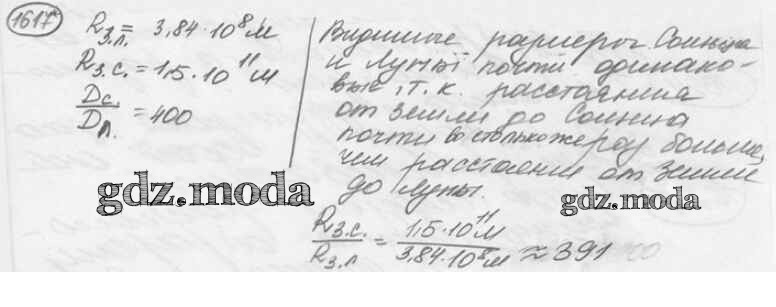 1617*
R з.л. = 3,84·10⁸ м
R з.с. = 1,5·10¹¹ м
Dс. / Dл. = 400
Видимые размеры Солнца
и Луны почти одинако-
вые, т.к. расстояния
от Земли до Солнца
почти во столько же раз больше,
чем расстояния от Земли
до Луны.
R з.с. / R з.л = 1,5·10¹¹ м / 3,84·10⁸ м ≈ 391
gdz.moda
gdz.moda